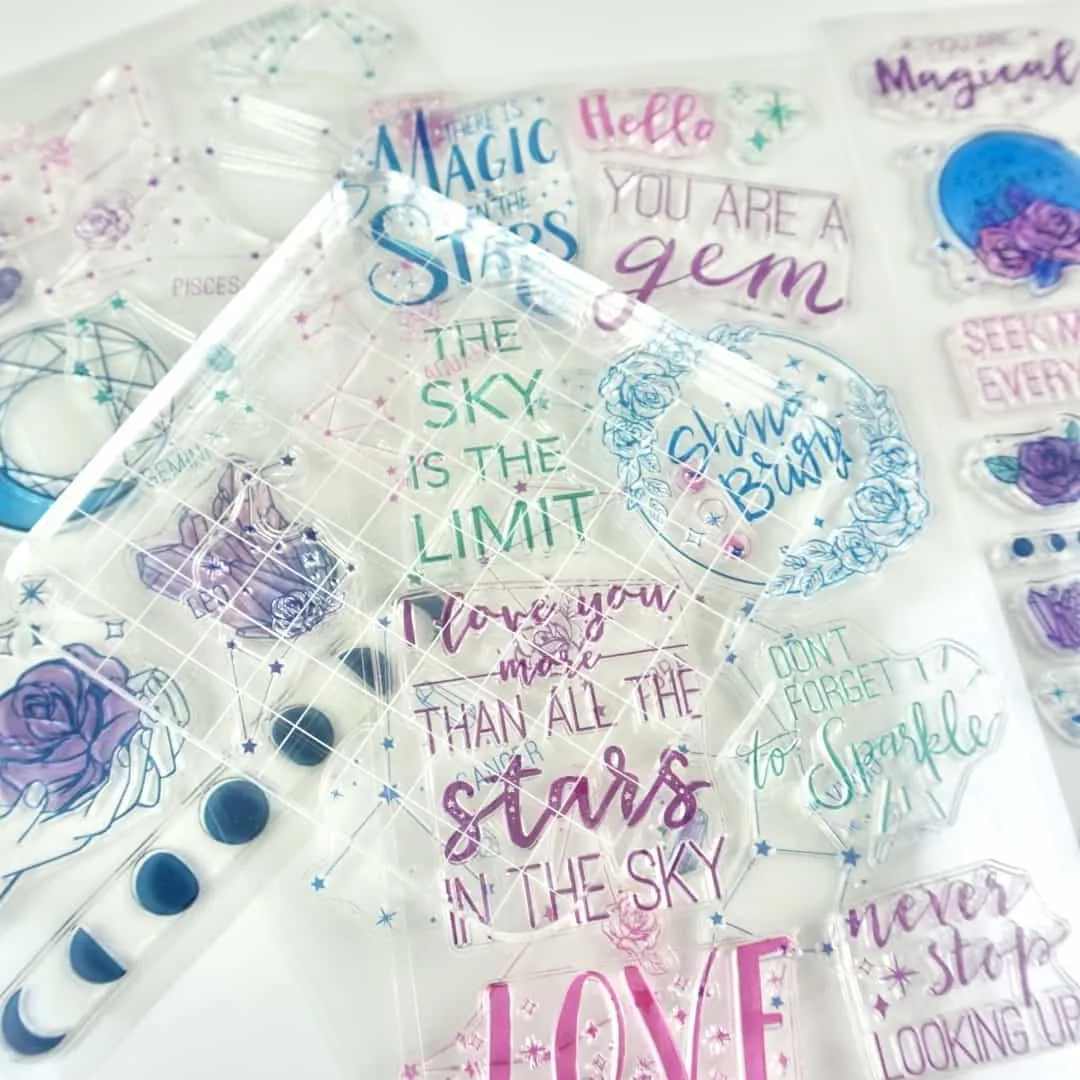 THERE IS
MAGIC
IN THE
STARS
Hello
YOU ARE A
gem
YOU ARE
Magical
PISCES
THE
SKY
IS THE
LIMIT
Shine
Bright
SEEK M
EVERY
GEMINI
LEO
I love you
more
THAN ALL THE
CANCER
stars
IN THE SKY
DON'T
FORGET
to Sparkle
LOVE
never
stop
LOOKING UP